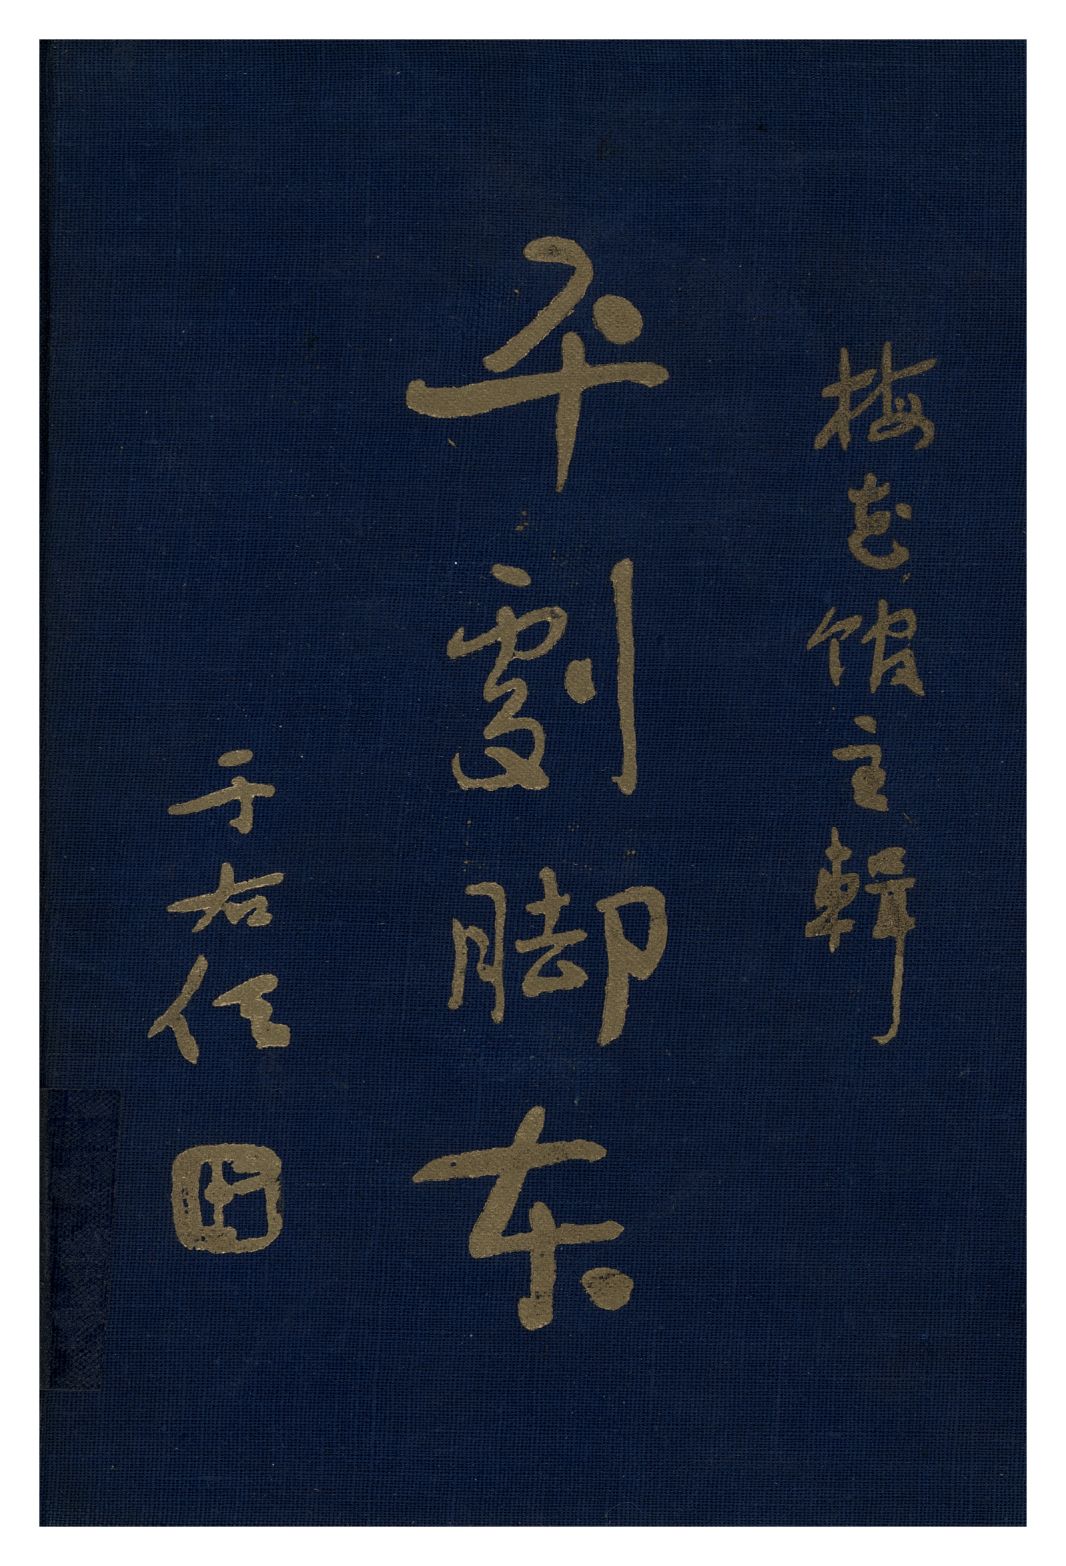 梅花館主輯
平劇脚本
于右任